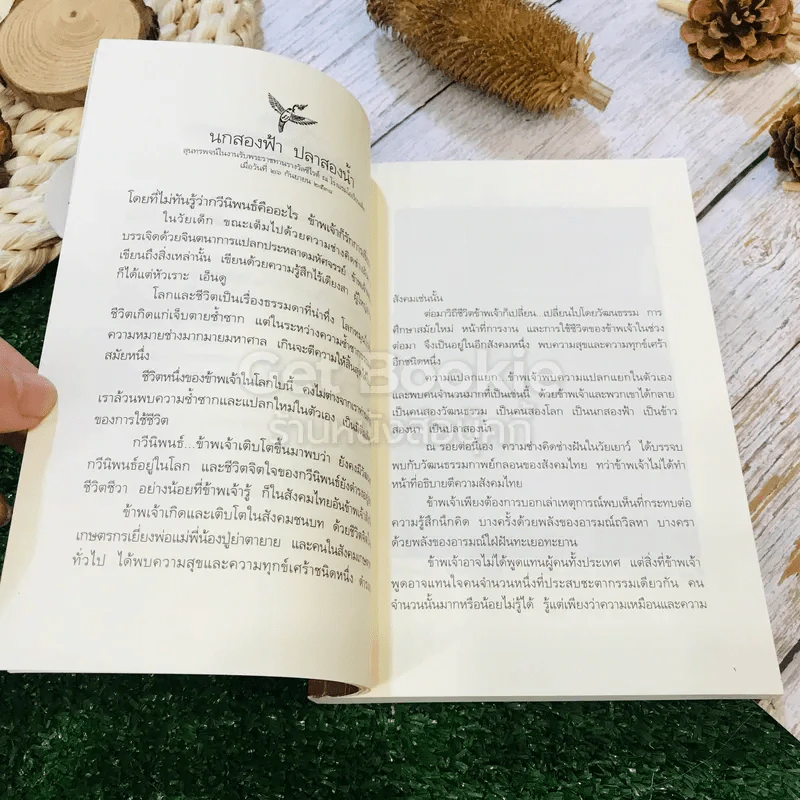 นกสองฟ้า ปลาสองน้ำ
สุนทรพจน์ในงานรับพระราชทานรางวัลซีไรต์ ณ
เมื่อวันที่ ๒๖ กันยายน
โดยที่ไม่ทันรู้ว่ากวีนิพนธ์คืออะไร ข้าพเจ้าก็รัก
ในวัยเด็ก ขณะเต็มไปด้วยความช่างคิดช่าง
บรรเจิดด้วยจินตนาการแปลกประหลาดมหัศจรรย์
เขียนถึงสิ่งเหล่านั้น เขียนด้วยความรู้สึกไร้เดียงสา
ก็ได้แต่หัวเราะ เอ็นดู
โลกและชีวิตเป็นเรื่องธรรมดาที่น่าทึ่ง
ชีวิตเกิดแก่เจ็บตายซ้ำซาก แต่ในระหว่างความซ้ำซาก
ความหมายช่างมากมายมหาศาล เกินจะตีความให้สิ้นสุด
สมัยหนึ่ง
ชีวิตหนึ่งของข้าพเจ้าในโลกใบนี้ คงไม่ต่างจาก
เราล้วนพบความซ้ำซากและแปลกใหม่ในตัวเอง
ของการใช้ชีวิต
กวีนิพนธ์...ข้าพเจ้าเติบโตขึ้นมาพบว่า ยังคงมี
กวีนิพนธ์อยู่ในโลก และชีวิตจิตใจของกวีนิพนธ์ยังดำรง
ชีวิตชีวา อย่างน้อยที่ข้าพเจ้ารู้ ก็ในสังคมไทยอันข้าพเจ้า
ข้าพเจ้าเกิดและเติบโตในสังคมชนบท ด้วยชีวิต
เกษตรกรเยี่ยงพ่อแม่พี่น้องปู่ย่าตายาย และคนในสังคม
ทั่วไป ได้พบความสุขและความทุกข์เศร้าชนิดหนึ่ง
สังคมเช่นนั้น
ต่อมาวิถีชีวิตข้าพเจ้าก็เปลี่ยน เปลี่ยนไปโดยวัฒนธรรม การ
ศึกษาสมัยใหม่ หน้าที่การงาน และการใช้ชีวิตของข้าพเจ้าในช่วง
ต่อมา จึงเป็นอยู่ในอีกสังคมหนึ่ง พบความสุขและความทุกข์เศร้า
อีกชนิดหนึ่ง
ความแปลกแยก ข้าพเจ้าพบความแปลกแยกในตัวเอง
และพบคนจำนวนมากที่เป็นเช่นนี้ ข้าพเจ้าและพวกเขาได้กลาย
เป็นคนสองวัฒนธรรม เป็นคนสองโลก เป็นนกสองฟ้า เป็นข้าว
สองนา เป็นปลาสองน้ำ
ณ รอยต่อนี่เอง ความช่างคิดช่างฝันในวัยเยาว์ ได้บรรจบ
พบกับวัฒนธรรมกาพย์กลอนของสังคมไทย ทว่าข้าพเจ้าไม่ได้ทำ
หน้าที่อธิบายตีความสังคมไทย
ข้าพเจ้าเพียงต้องการบอกเล่าเหตุการณ์พบเห็นที่กระทบต่อ
ความรู้สึกนึกคิด บางครั้งด้วยพลังของอารมณ์ถวิลหา บางครา
ด้วยพลังของอารมณ์ใฝ่ฝันทะเยอทะยาน
ข้าพเจ้าอาจไม่ได้พูดแทนผู้คนทั้งประเทศ แต่สิ่งที่ข้าพเจ้า
พูดอาจแทนใจคนจำนวนหนึ่งที่ประสบชะตากรรมเดียวกัน คน
จำนวนนั้นมากหรือน้อยไม่รู้ได้ รู้แต่เพียงว่าความเหมือนและความ
Get Bookie
ร้านหนังสือ